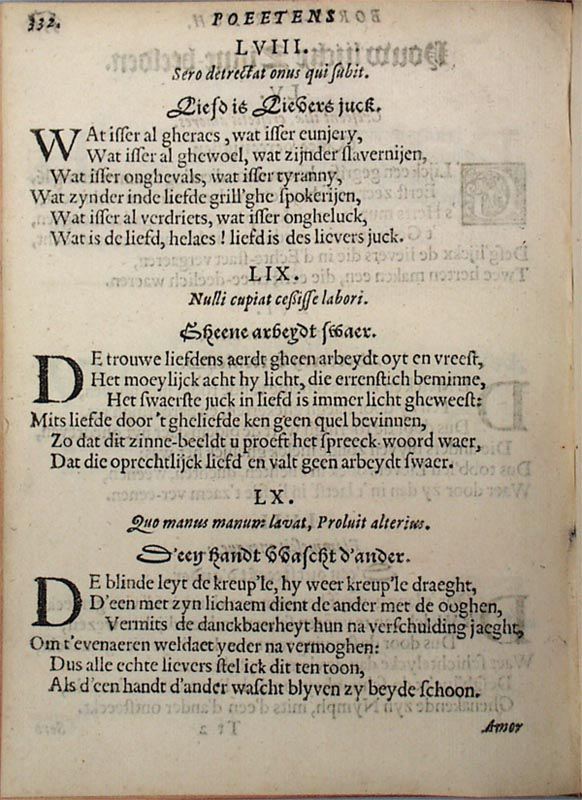 332. POEETENS
LVIII.
Sero detrectat onus qui subit.
Liefd is Lievers juck.
WAt isser al gheraes, wat isser eunjery,
Wat isser al ghewoel, wat zijnder slavernijen,
Wat isser onghevals, wat isser tyranny,
Wat zynder inde liefde grill'ghe spokerijen,
Wat isser al verdriets, wat isser ongheluck,
Wat is de liefd, helaes! liefd is des lievers juck.
LIX.
Nulli cupiat cessisse labori.
Gheene arbeydt swaer.
DE trouwe liefdens aerdt gheen arbeydt oyt en vreest,
Het moeylijck acht hy licht, die errenstich beminne,
Het swaerste juck in liefd is immer licht gheweest:
Mits liefde door 't gheliefde ken geen quel bevinnen,
Zo dat dit zinne-beeldt u proeft het spreeck-woord waer,
Dat die oprechtlijck liefd' en valt geen arbeydt swaer.
LX.
Quo manus manum lavat, Proluit alterius.
D'een handt Wascht d'ander.
DE blinde leyt de kreup'le, hy weer kreup'le draeght,
D'een met zyn lichaem dient de ander met de ooghen,
Vermits de danckbaerheyt hun na verschulding jaeght,
Om t'evenaeren weldaet yeder na vermoghen:
Dus alle echte lievers stel ick dit ten toon,
Als d'een handt d'ander wascht blyven zy beyde schoon.
Amor